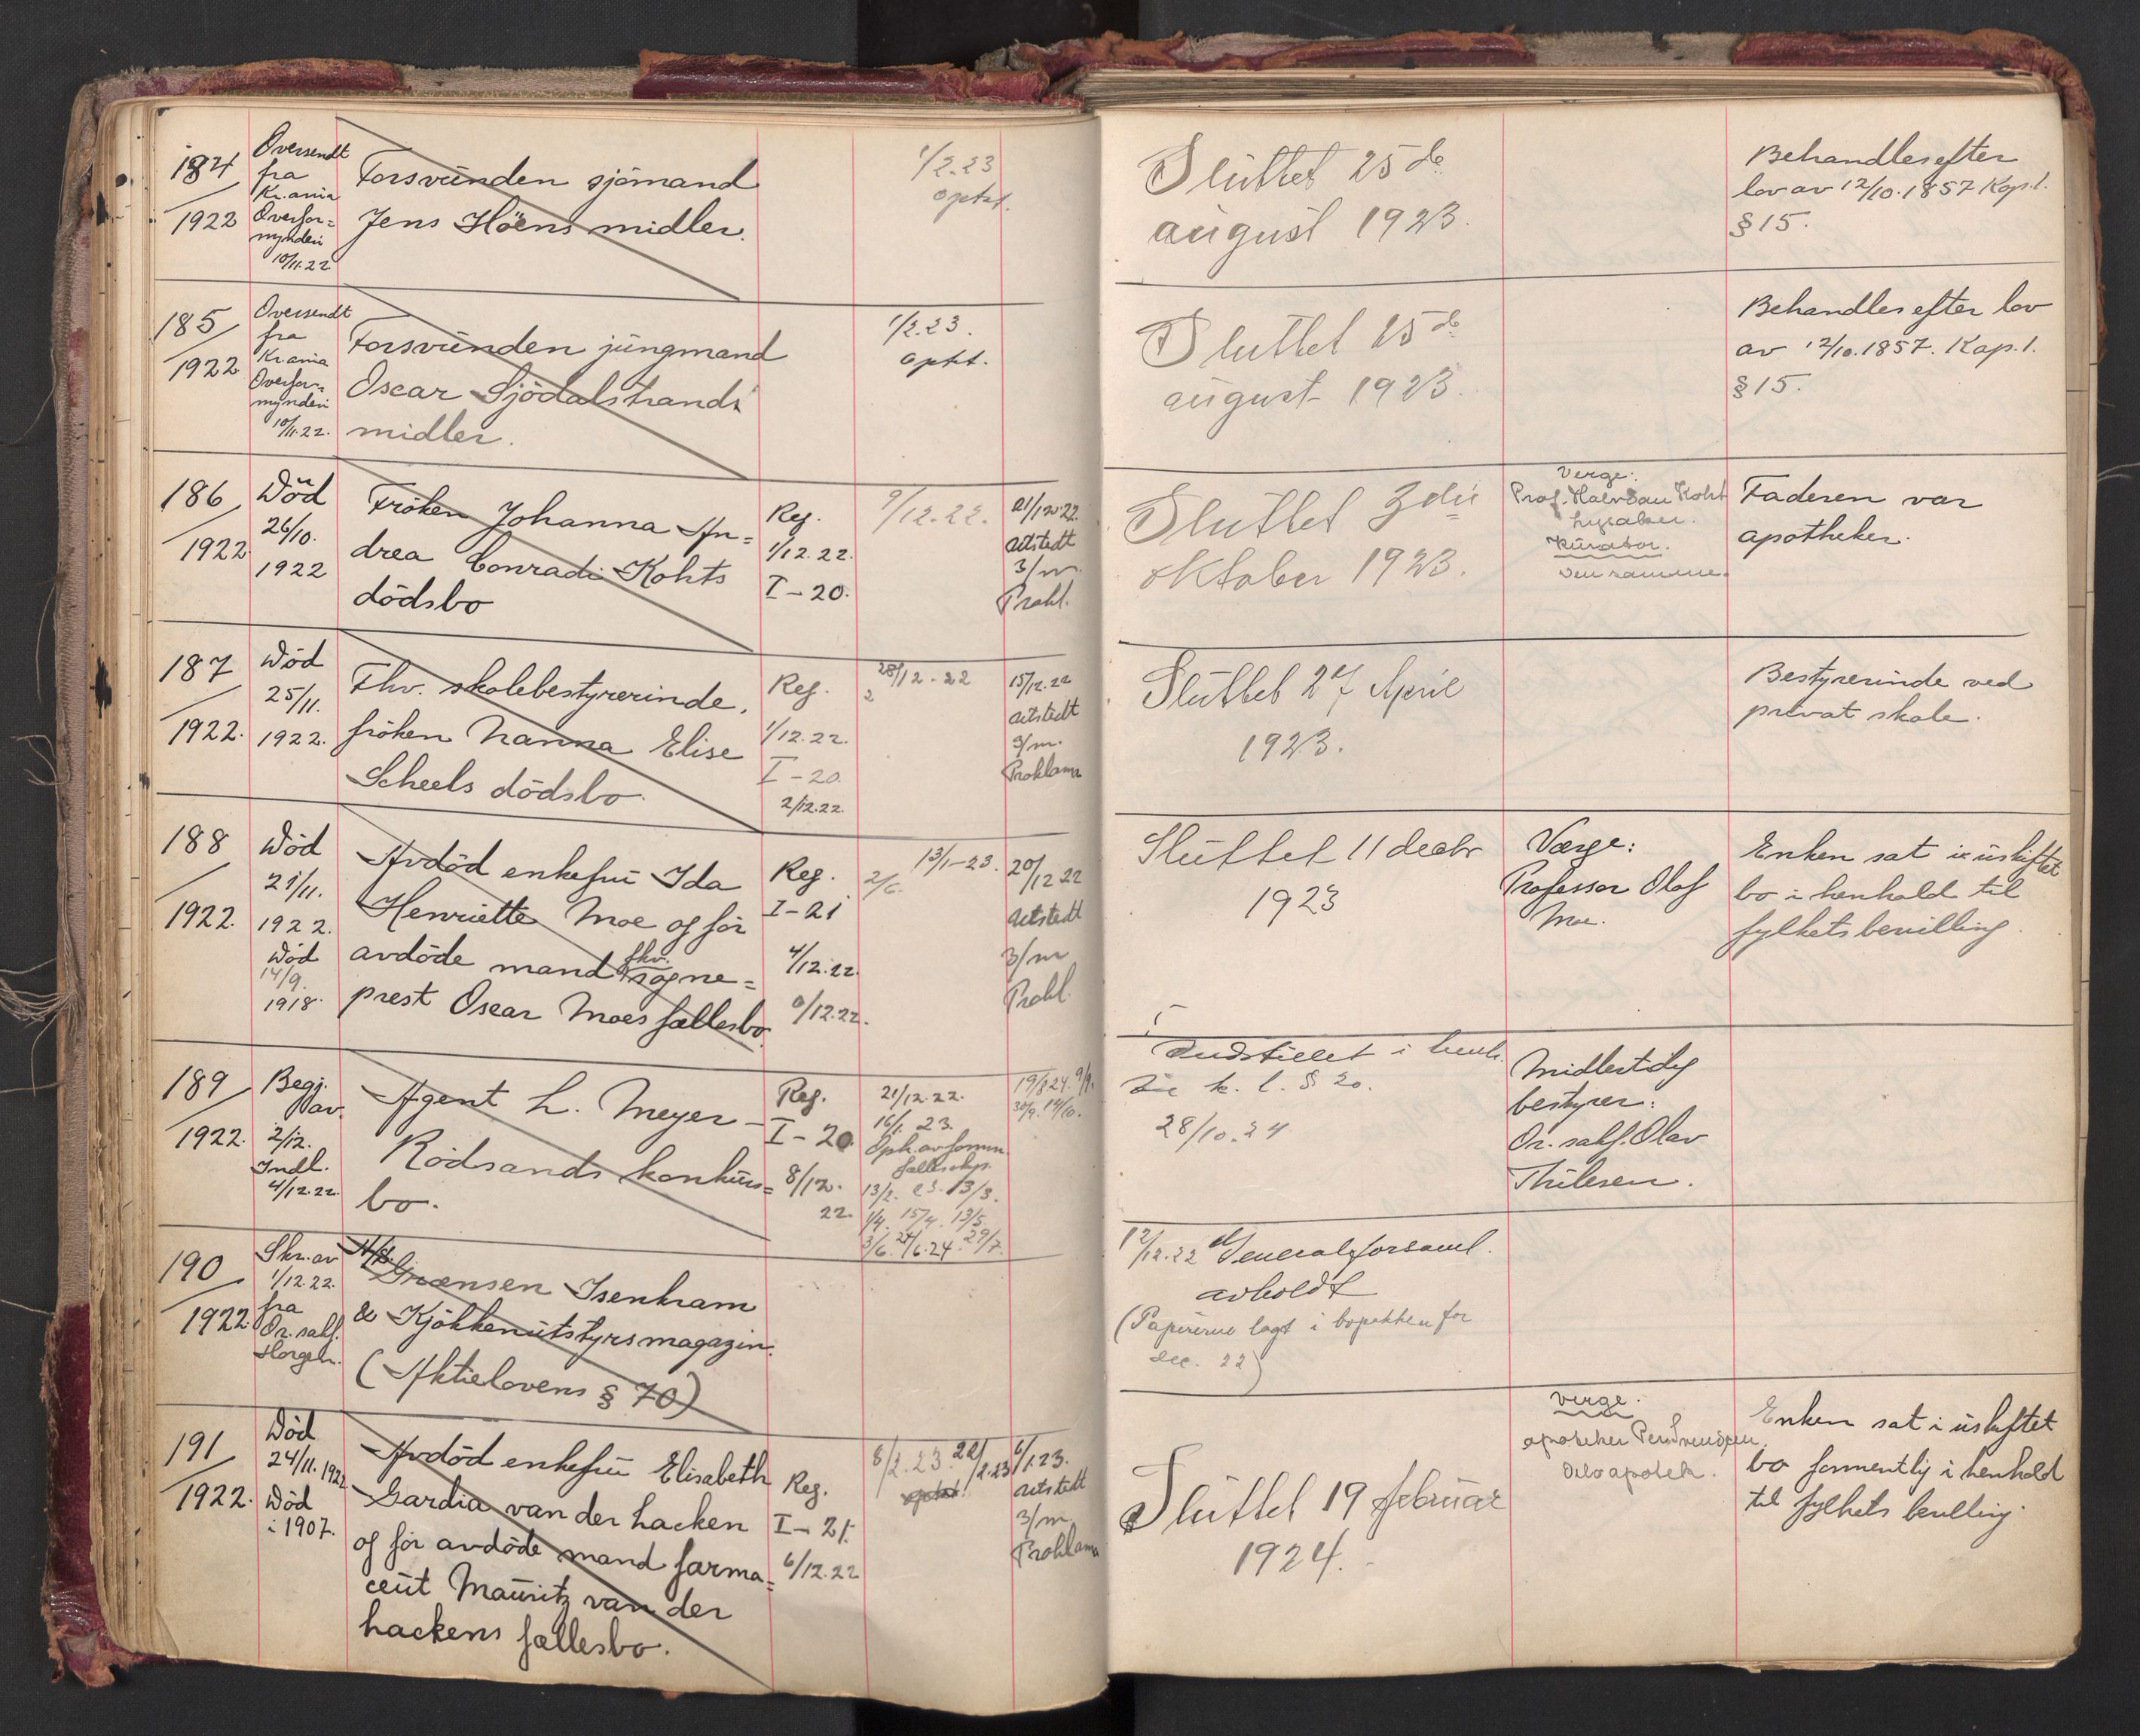 184
1922
Oversendt
fra
Kr.ania
Overfor=
mynderi
10/11.22
Forsvunden sjömand
Jens Höens midler.
1/2.23
optat.
Sluttet 25de
august 1923.
Behandles efter
lov av 12/10.1857 Kap.1.
§ 15.
185
1922
Oversendt
fra
Kr.ania
Overfor=
mynderi
10/11.22.
Forsvunden jungmand
Oscar Sjödalstrands
midler.
1/2.23.
optat.
Sluttet 25de
august 1923.
Behandles efter lov
av 12/10.1857. Kap.1.
§ 15.
186
1922
Död
26/10.
1922
Fröken Johanna An=
drea Conradi Kohts
dödsbo
Reg.
1/12.22.
I - 20.
9/12.22.
21/12.22.
utstedt
3/m.
Prokl.
Sluttet 3die
oktober 1923.
Verge:
Prof. Halvdan Koht
Lysaker.
Kurator.
den samme.
Faderen var
apotheker.
187
1922.
Död
25/11.
1922.
Fhv. skolebestyrerinde,
fröken Nanna Elise
Scheels dödsbo.
Reg.
1/12.22.
I - 20.
2/12.22.
28/12.22
2
15/12.22
utstedt
3/m.
Proklama
Sluttet 27 April
1923.
Bestyrerinde ved
privat skole.
188
1922.
Död
21/11.
1922.
Död
14/9.
1918.
Avdöd enkefru Ida
Henriette Moe og för
avdöde mand fhv. sogne=
prest Oscar Moes fællesbo.
Reg.
I - 21
4/12.22.
9/12.22.
13/1-23.
2/6.
20/12 22
utstedt
3/m
Prokl.
Sluttet 11 decbr
1923
Værge:
Professor Olaf
Moe.
Enken sat i uskiftet
bo i henhold til
fylkets bevilling.
189
1922.
Begj.
av.
2/12.
Indl.
4/12.22.
Agent L. Meyer -
Rödsands konkurs=
bo.
Reg.
I - 20
8/12.
22.
21/12.22.
16/1. 23.
Oph. av
13/2. 23. 13/3.
1/4. 15/4. 13/5.
3/6. 24/6.24. 29/7.
19/8 24. 9/9.
30/9. 14/10.
Indstillet i henh.
til k. l. § 20.
28/10.24
Midlertidig
bestyrer:
Or. sakf. Olav
Thilesen.
190
1922.
Skr. av
1/12.22.
fra
Or. sakf.
Horgen.
A/S
Grænsen Isenkram
& Kjökkenutstyrsmagazin.
(Aktielovens § 70)
12/12.22 Generalforsaml.
avholdt
(Papirerne lagt i bopakken for
dec. 22)
191
1922.
Död
24/11.1922
Död
i 1907.
Avdöd enkefru Elisabeth
Gardia van der Hacken
og för avdöde mand farma=
ceut Mauritz van der
Hackens fællesbo.
Reg.
I - 21.
6/12.22
8/2.23. 22/2.23
optat
6/1.23.
utstedt
3/m
Proklama
Sluttet 19 februar
1924.
Verge:
apoteker Per Svendsen
Oslo apotek.
Enken sat i uskiftet
bo formentlig i henhold
til fylkets bevilling.